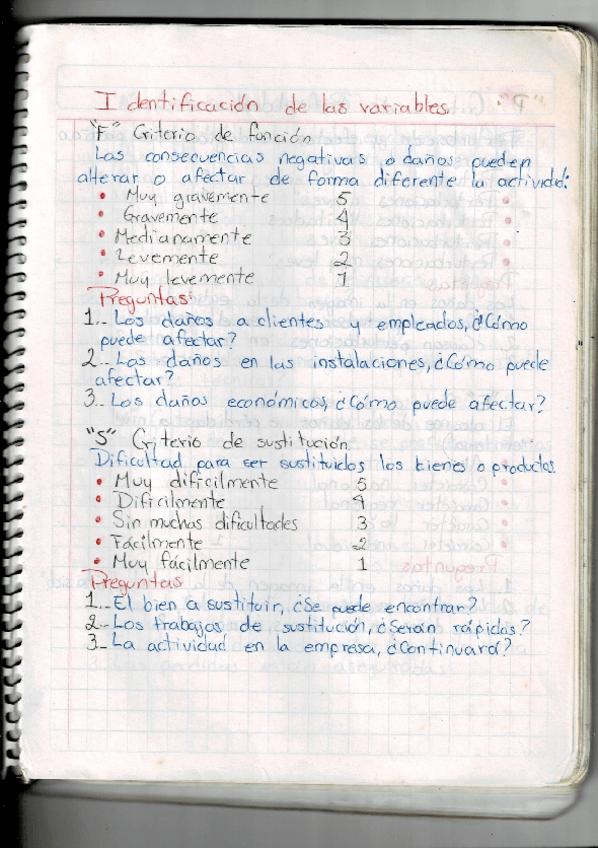 Identificación de las variables.
"F" Criterio de función
Las consecuencias negativas o daños pueden
alterar o afectar de forma diferente la actividad:
• Muy gravemente 5
• Gravemente 4
• Medianamente 3
• Levemente 2
• Muy levemente 1
Preguntas:
1.- Los daños a clientes y empleados, ¿Cómo
puede afectar?
2.- Los daños en las instalaciones, ¿Cómo puede
afectar?
3.- Los daños económicos, ¿Cómo puede afectar?
"S" Criterio de sustitución.
Dificultad para ser sustituidos los bienes o productos.
• Muy difícilmente 5
• Dificilmente 4
• Sin muchas dificultades 3
• Fácilmente 2
• Muy fácilmente 1
Preguntas
1.- El bien a sustituir, ¿Se puede encontrar?
2.- Los trabajos de sustitución, ¿Serán rápidos?
3.- La actividad en la empresa, ¿Continuará?